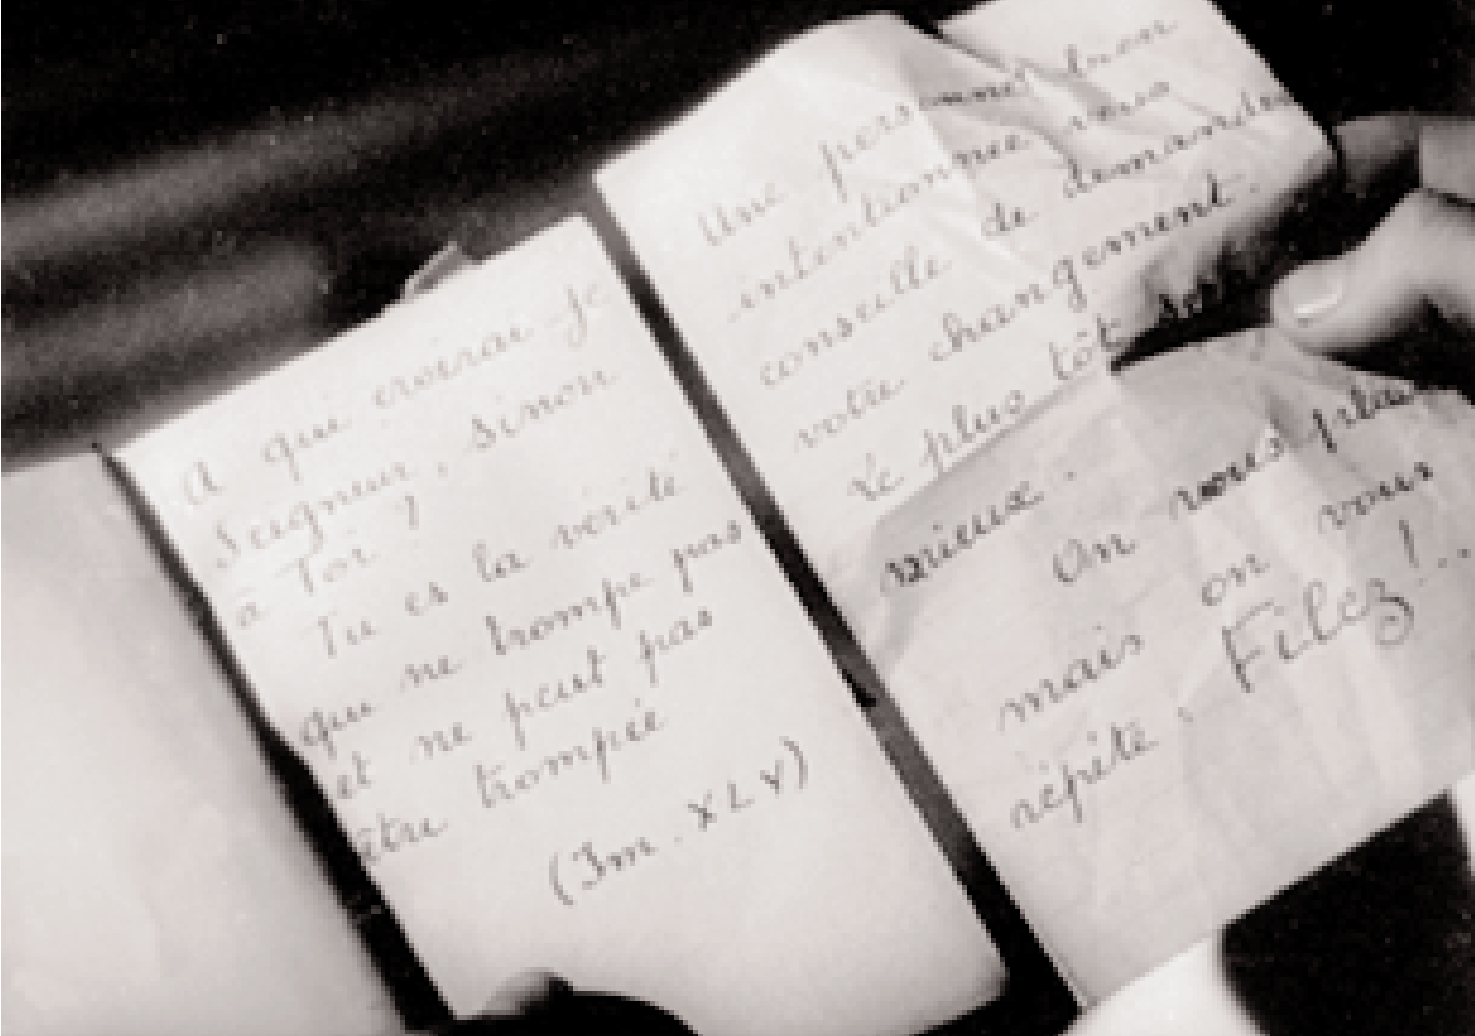 A qui croirai-je
Seigneur, sinon
à Toi ?
Tu es la vérité
qui ne trompe pas
et ne peut pas
être trompée
(Im. XLV)
Une personne bien
intentionnée vous
conseille de demander
votre changement.
Le plus tôt sera
mieux.
On vous plaint
mais on vous
répète : Filez !..